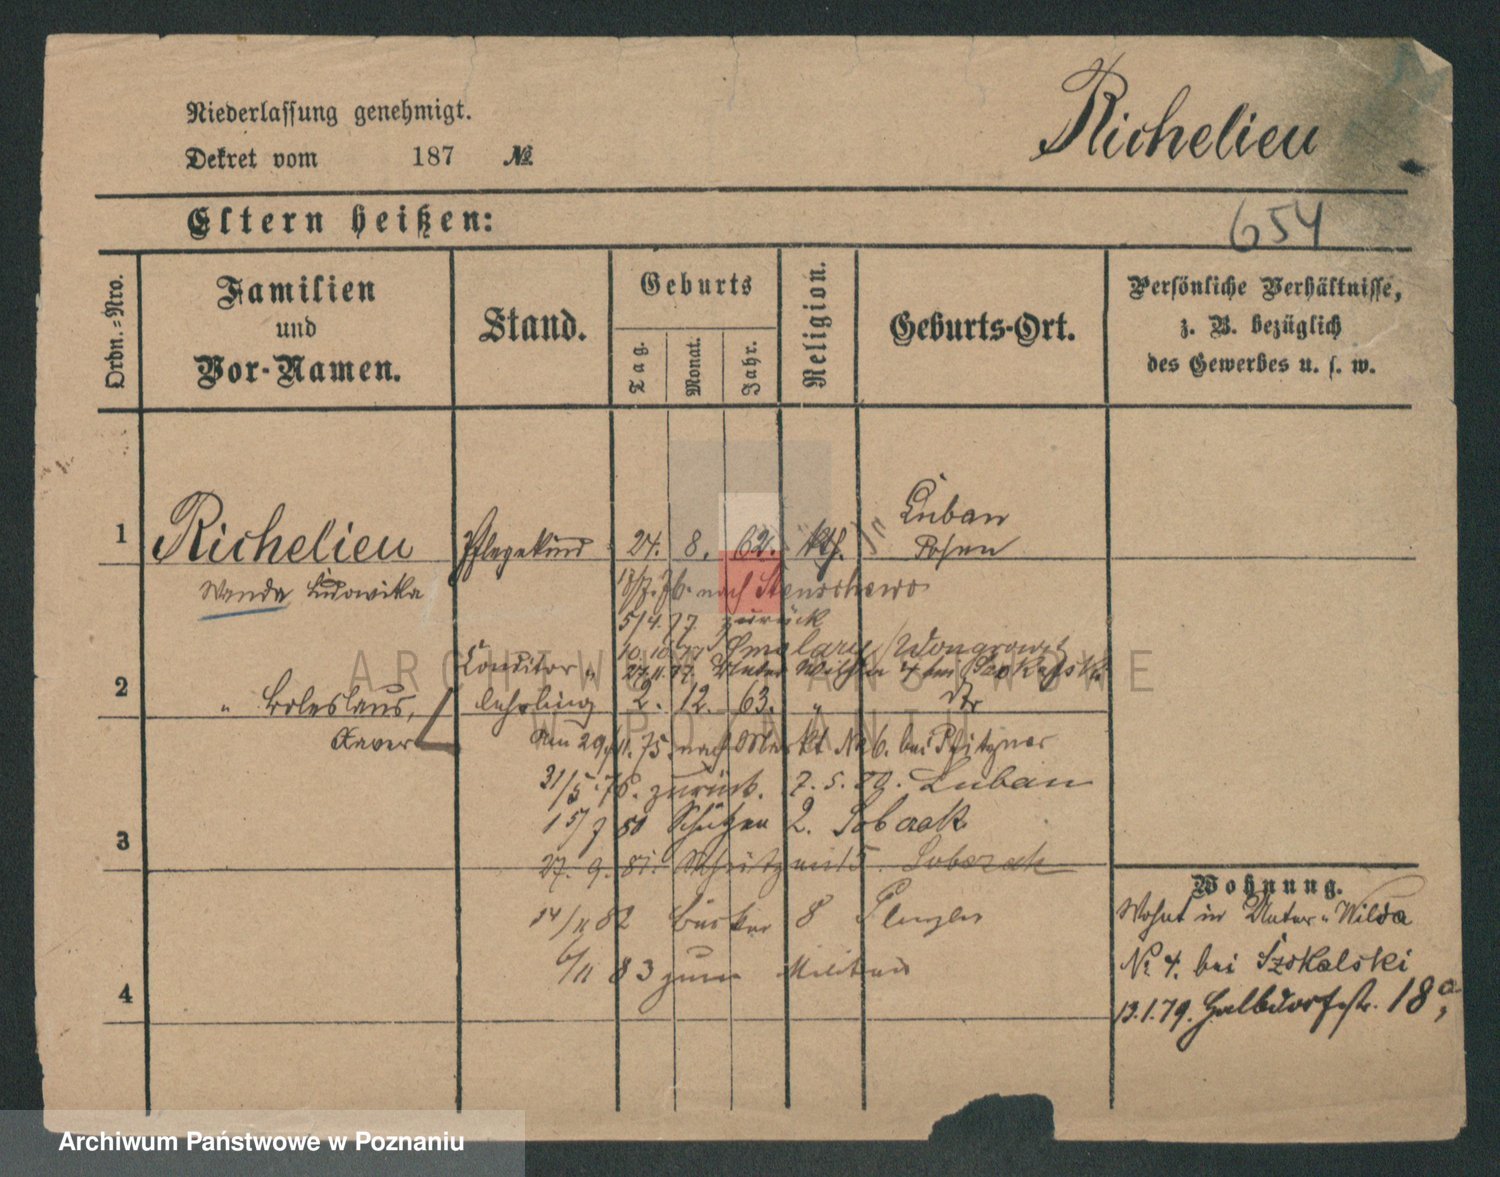 Niederlassung genehmigt.
Dekret vom 187 №
Richelieu
Eltern heißen:
654
Ordn.=Nro.
Familien
und
Vor-Namen.
Stand.
Geburts
Tag.
Monat.
Jahr.
Religion.
Geburts-Ort.
Persönliche Verhältnisse,
z. B. bezüglich
des Gewerbes u. s. w.
1 Richelieu Pflegekind 24. 8. 62. kth. Luban
Posen
Wanda Ludowika
13/7. 76. nach Stenschewo
5/4. 77. zurück
10.10.77 Wongrowitz
27.11.77 Unter Wilda 4 bei Szokalski
2 " Boleslaus, Conditor-
lehrling 2. 12. 63. " Do
Xaver
Am 29/11. 75. nach Markt No 6. bei Pfitzner
31/5. 76. zurück. 7. 5. 79. Luban
3
15/7 80 Schützen 2. Sobczak
27. 9. 81. Schützenstr 5. Sobczak
14/11 82 Bäcker 8
6/11 83 zum Militair
4
Wohnung.
Wohnt in Unter-Wilda
No 4. bei Szokalski
13.1.79. Halbdorfstr. 18a,
ARCHIWUM PAŃSTWOWE
W POZNANIU
Archiwum Państwowe w Poznaniu